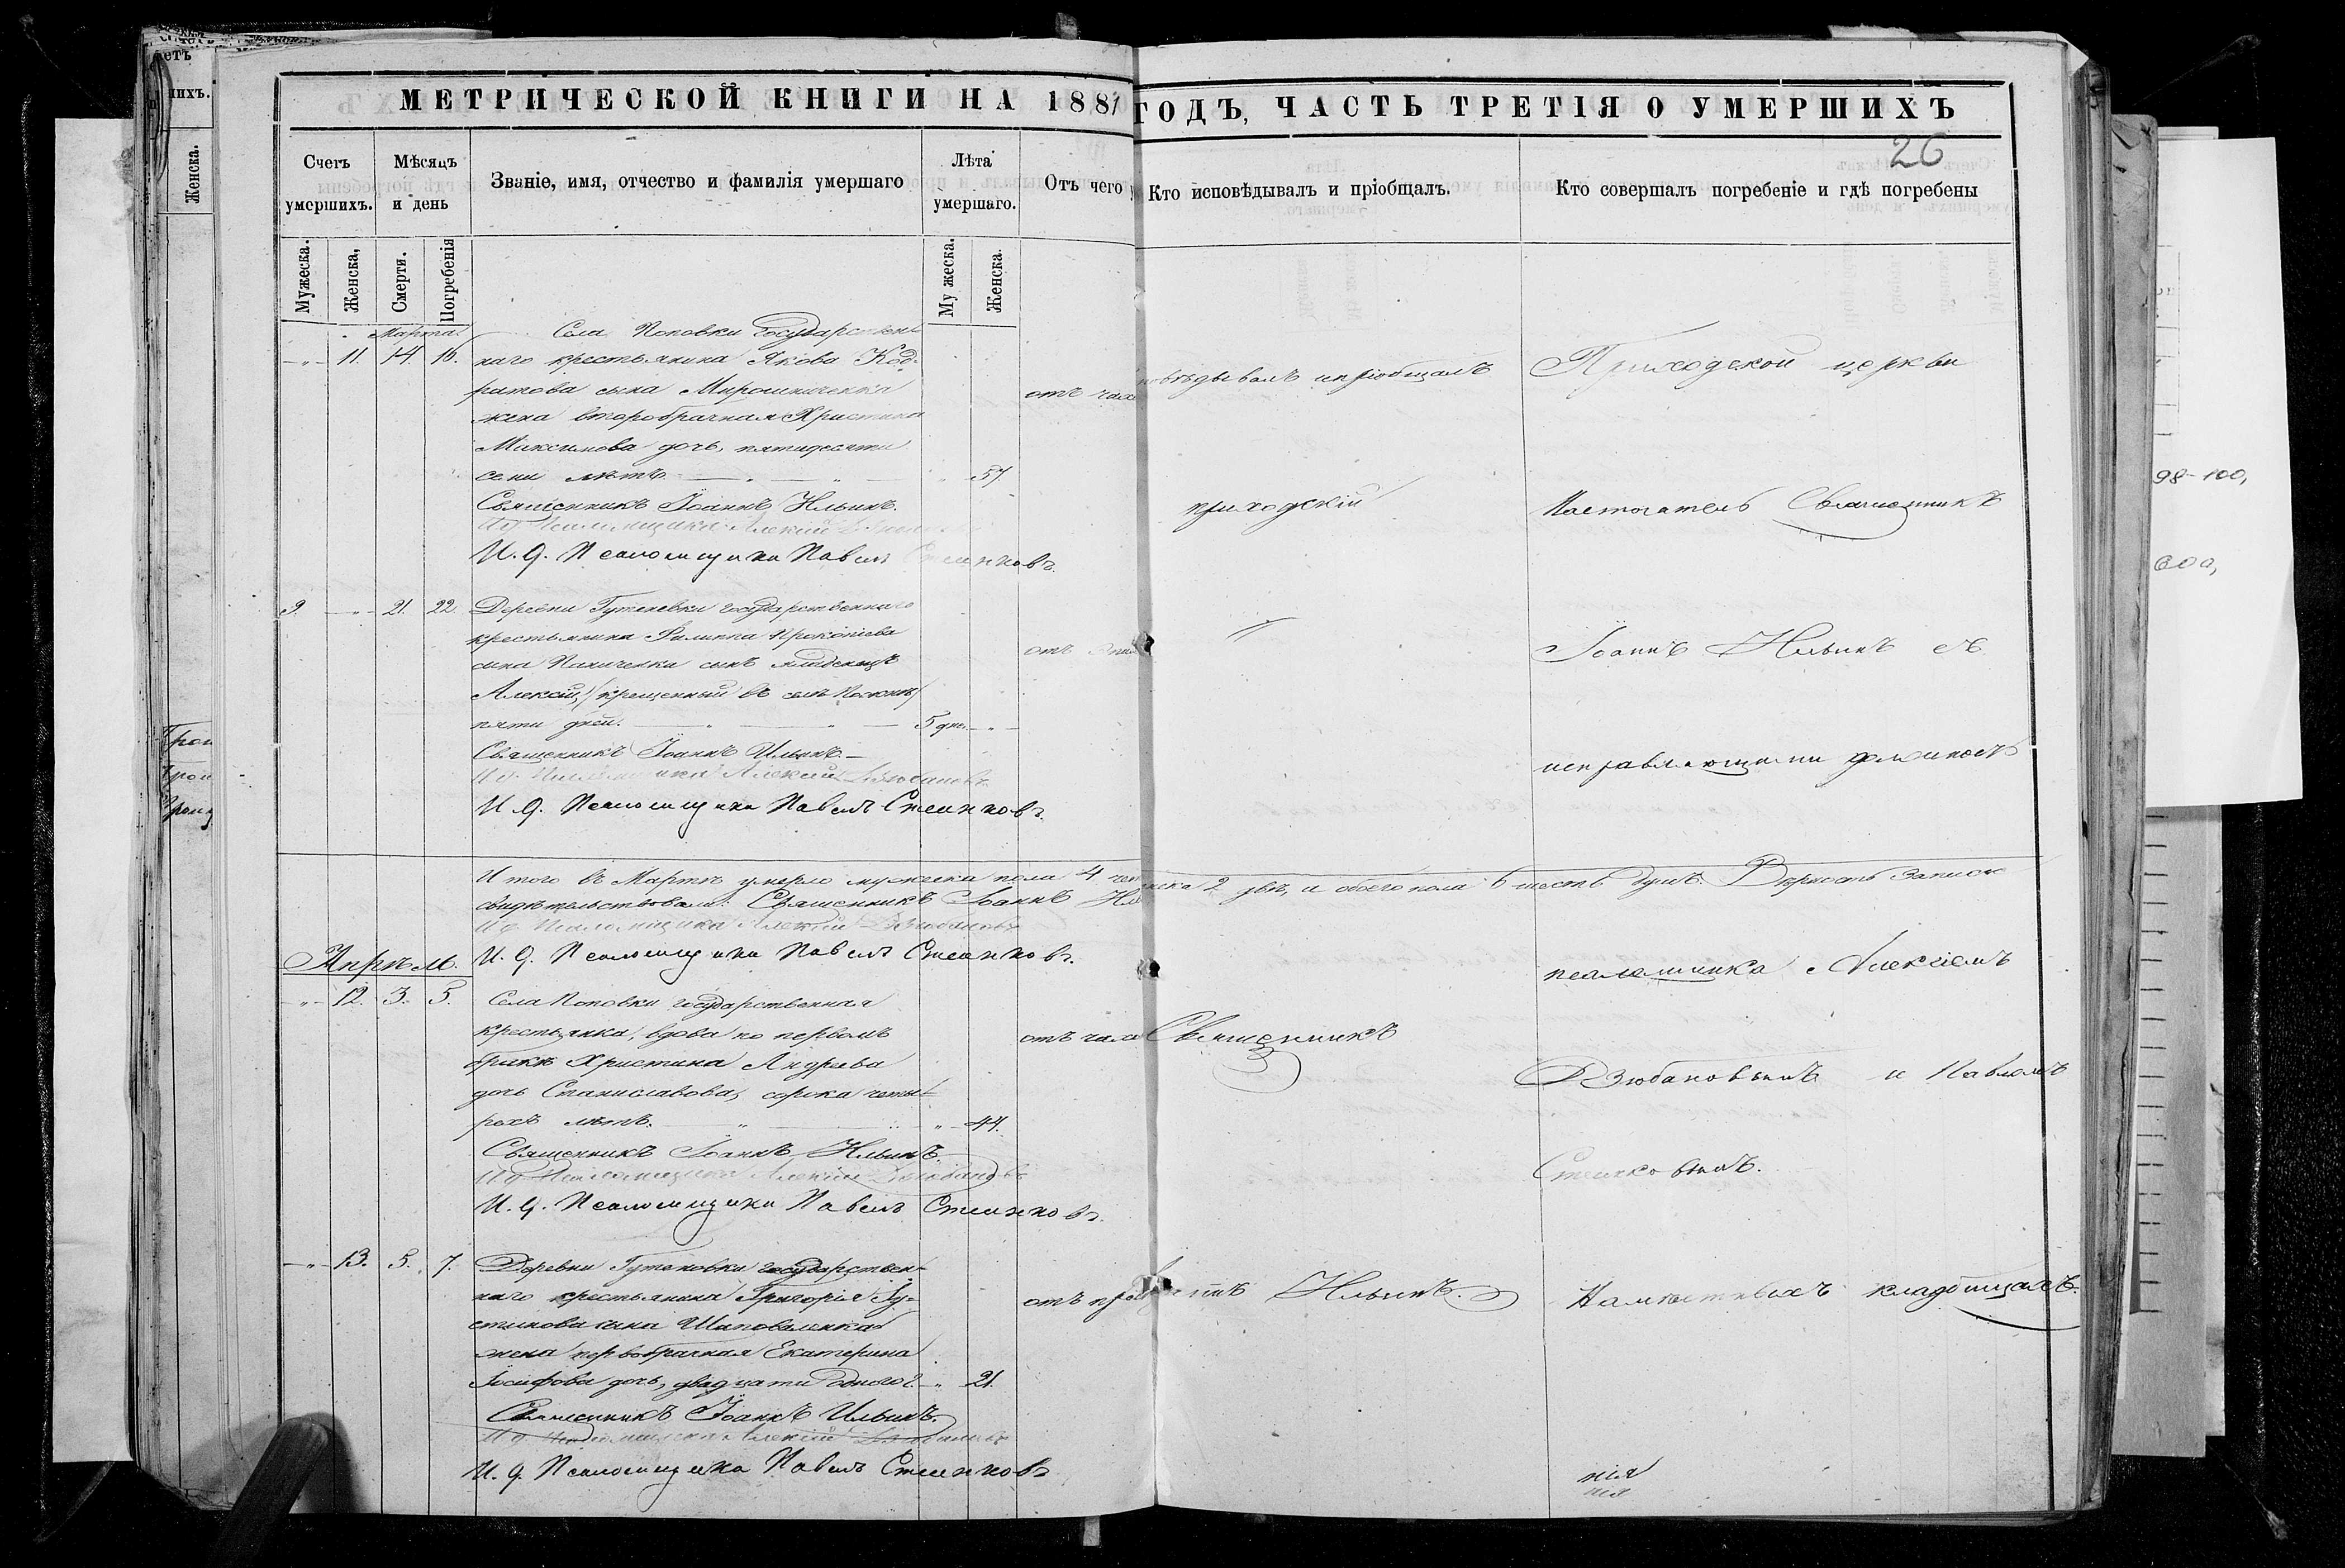 МЕТРИЧЕСКОЙ КНИГИ НА 1881 ГОДЪ, ЧАСТЬ ТРЕТІЯ О УМЕРШИХЪ
26
Счетъ умершихъ.
Мѣсяцъ и день
Званіе, имя, отчество и фамилія умершаго
Лѣта умершаго.
Отъ чего
Кто исповѣдывалъ и пріобщалъ.
Кто совершалъ погребеніе и гдѣ погребены
Мужеска.
Женска,
Смерти.
Погребенія
Му жеска.
Женска.
Марта
11. 14. 16.
Села Поповки Государствен-
наго крестьянина Якова Код-
ратова сына Мирошниченка
жена второбрачная Христина
Максимова дочь, пятидесяти
семи лѣтъ 57
отъ
Священникъ Іоаннъ Ильинъ.
И. д. Псаломщика Павелъ Стеинковъ.
9. 21. 22.
Деревни Гутеневки государственнаго
крестьянина Филиппа Прокопіева
сына сынъ младенецъ
Алексій, /крещенный въ селѣ
пяти дней. 5 дне.
отъ
Священникъ Іоаннъ Ильинъ
И. д. Псаломщика Алексій
И. д. Псаломщика Павелъ Стеинковъ.
Итого въ Мартѣ умерло мужеска пола 4 2 двѣ, и обоего пола 6 шесть душъ. Вѣрность записи
свидѣтельствовали: Священникъ Іоаннъ
И. д. Псаломщика Алексій
И. д. Псаломщика Павелъ Стеинковъ.
Апрѣль.
12. 3. 5.
Села Поповки государственная
крестьянка, вдова по первомъ
бракѣ Христина Андреева
дочь Станиславова, сорока четы-
рехъ лѣтъ. 44.
отъ
Священникъ Іоаннъ Ильинъ.
И. д. Псаломщика Алексій
И. д. Псаломщика Павелъ Стеинковъ.
13. 5. 7.
Деревни Гутеновки государствен-
наго крестьянина Григорія Іу-
стинова сына Шаповаленка
жена первобрачная Екатерина
Іосифова дочь, двадцати одного г. 21.
отъ
Священникъ Іоаннъ Ильинъ.
И. д. Псаломщика Алексій
И. д. Псаломщика Павелъ Стеинковъ
повѣдывалъ и пріобщалъ
приходскій
Священникъ
Ильинъ.
Приходской церкви
Настоятель Священникъ
Іоаннъ Ильинъ съ
исправляющими должность
псаломщика Алексіемъ
Дзюбановымъ и Павломъ
Стеинковымъ.
кладбищахъ.
нія
нія
98-100,